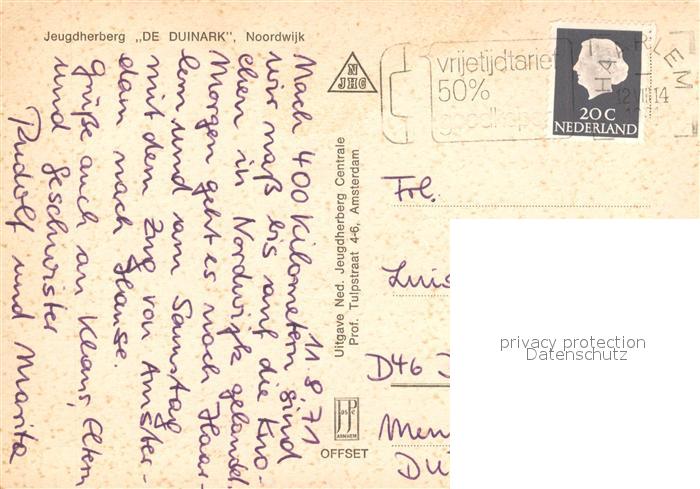 Jeugdherberg „DE DUINARK", Noordwijk
11.8.71
Nach 400 Kilometern sind
wir naß bis auf die Kno-
chen in Nordwijk gelandet.
Morgen geht es nach Haar-
lem und am Samstag
mit dem Zug von Amster-
dam nach Hause.
Grüße auch an Klaus, Eltern
und Geschwister
Rudolf und Marita
NJHC
Uitgave Ned. Jeugdherberg Centrale
Prof. Tulpstraat 4-6, Amsterdam
JosPe
ARNHEM
OFFSET
vrijetijdtarief
50%
HAARLEM
12 VIII 14
20 C
NEDERLAND
Frl.
Luis
D46 D
Men
privacy protection
Datenschutz